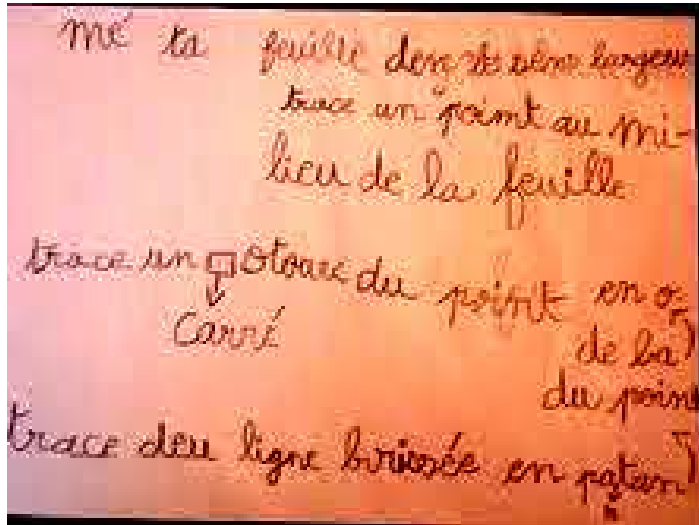 mé ta feuille den le sens largeur
trace un point au mi-
lieu de la feuille
trace un □ otour du point en o
carré
de ba
du poin
trace deu ligne brissée en patan